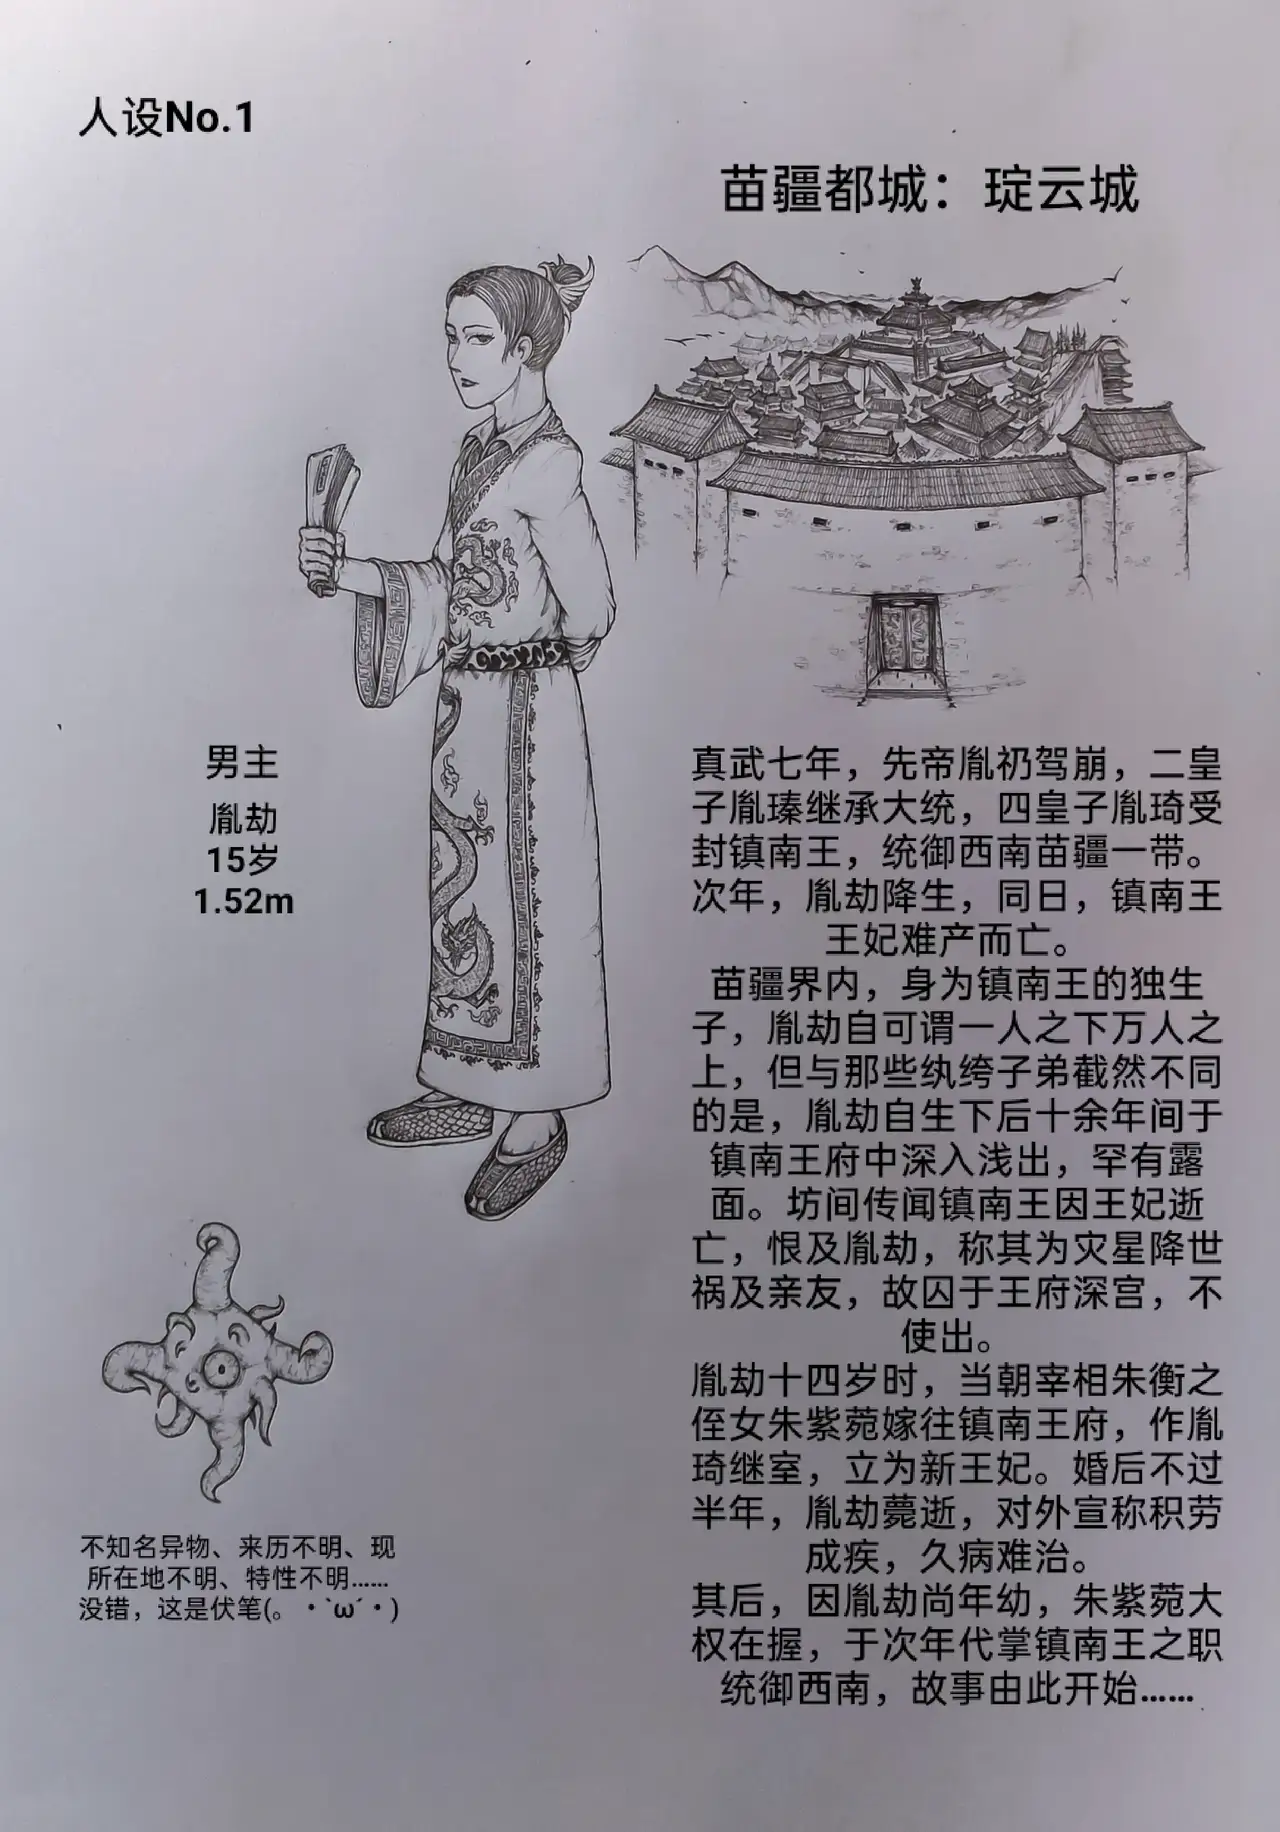 人设No.1
苗疆都城：琔云城
男主
胤劫
15岁
1.52m
真武七年，先帝胤礽驾崩，二皇
子胤瑧继承大统，四皇子胤琦受
封镇南王，统御西南苗疆一带。
次年，胤劫降生，同日，镇南王
王妃难产而亡。
苗疆界内，身为镇南王的独生
子，胤劫自可谓一人之下万人之
上，但与那些纨绔子弟截然不同
的是，胤劫自生下后十余年间于
镇南王府中深入浅出，罕有露
面。坊间传闻镇南王因王妃逝
亡，恨及胤劫，称其为灾星降世
祸及亲友，故囚于王府深宫，不
使出。
胤劫十四岁时，当朝宰相朱衡之
侄女朱紫菀嫁往镇南王府，作胤
琦继室，立为新王妃。婚后不过
半年，胤劫薨逝，对外宣称积劳
成疾，久病难治。
其后，因胤劫尚年幼，朱紫菀大
权在握，于次年代掌镇南王之职
统御西南，故事由此开始……
不知名异物、来历不明、现
所在地不明、特性不明……
没错，这是伏笔(。・`ω´・)